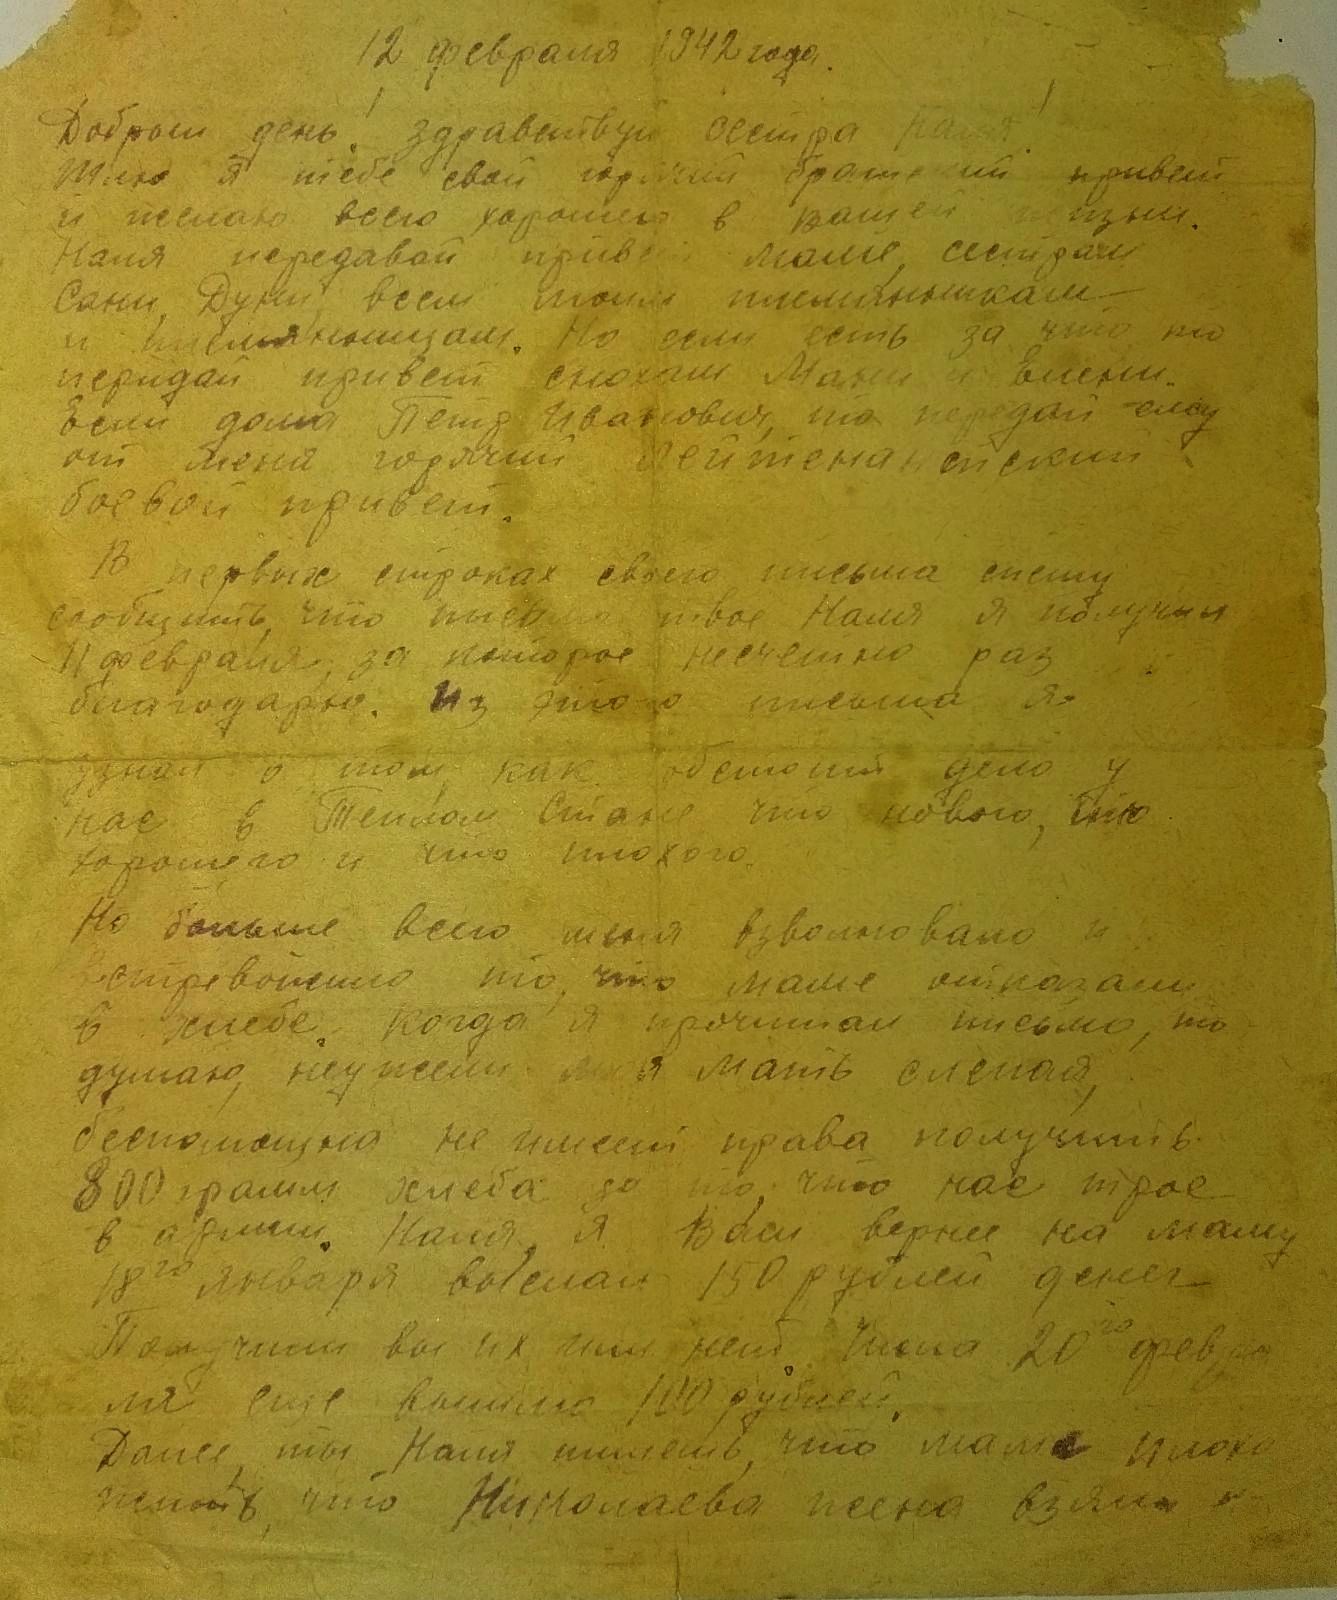 12 февраля 1942 года.
Добрый день! здравствуй сестра Наля!
Шлю я тебе свой горячий братский привет
и желаю всего хорошего в вашей жизни.
Наля передавай привет маме, сестрам
Сани, Дуни, всем моим племянникам
и племянницам. Но если есть за что то
передай привет снохам Мани и Елени.
Если дома Петр Иванович, то передай ему
от меня горячий лейтенантский
боевой привет.
В первых строках своего письма спешу
сообщить, что письмо твое Наля я получил
11 февраля, за которое несчетно раз
благодарю. Из этого письма я
узнал о том, как обстоит дело у
нас в Теплом Стане что нового, что
хорошего и что плохого.
Но больше всего меня взволновало и
встревожило то, что маме отказали
в хлебе. Когда я прочитал письмо, то
думаю, неужели моя мать слепая,
беспомощна не имеет права получить
800 грамм хлеба за то, что нас трое
в армии. Наля, я Вам вернее на маму
18го января выслал 150 рублей денег
Получили вы их или нет. Числа 20го февра
ля еще вышлю 100 рублей.
Далее ты Наля пишешь, что мама плохо
жить, что Николаева жена взяла